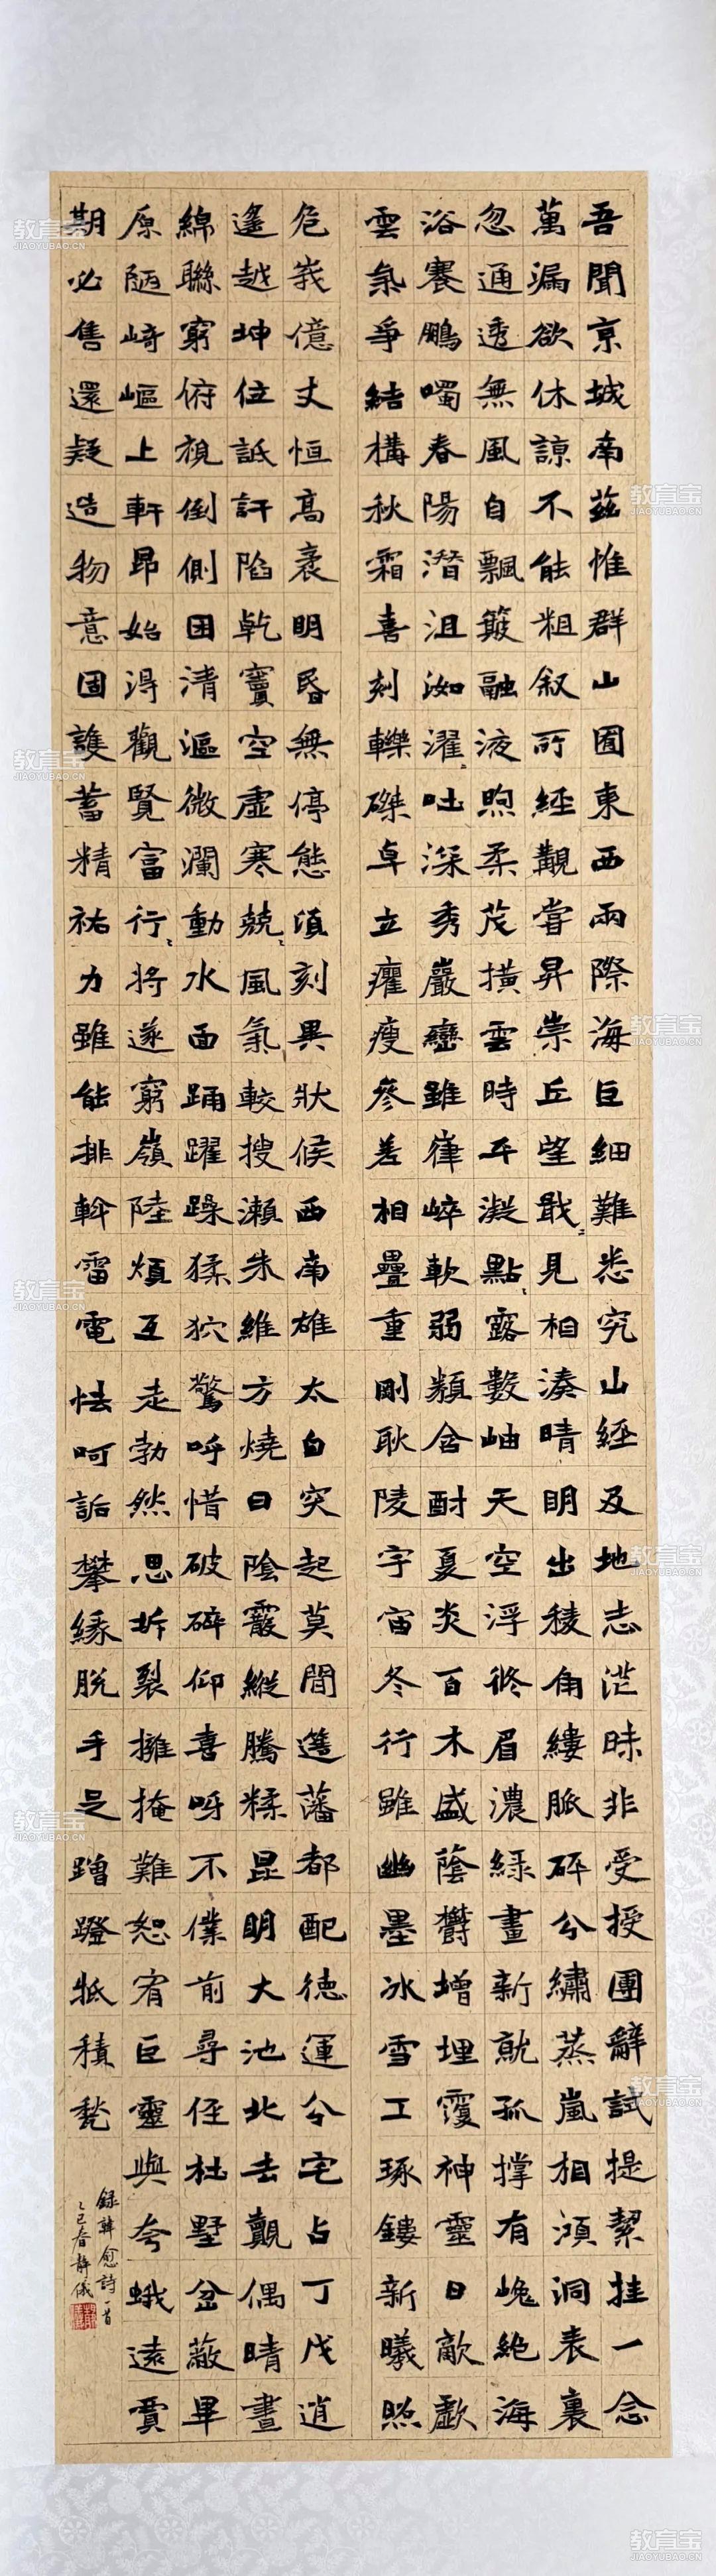 吾聞京城南茲惟群山囿東西兩際海巨細難悉究山經及地志茫昧非受授團辭試提挈挂一念
萬漏欲休諒不能粗叙所經觀嘗昇崇丘望戢〻見相湊晴明出稜角縷脈碎分繡蒸嵐相澒洞表裏
忽通透無風自飄簸融液煦柔茂橫雲時平凝點〻露數岫天空浮修眉濃綠畫新就孤撐有巉絕海
浴褰鵬噣春陽潛沮洳濯〻吐深秀巖巒雖嵂崒軟弱類含酎夏炎百木盛蔭鬱增埋覆神靈日歊歔
雲氣爭結構秋霜喜刻轢磔卓立癯瘦參差相疊重剛耿陵宇宙冬行雖幽墨冰雪工琢鏤新曦照
危峩億丈恒高袤明昏無停態頃刻異狀候西南雄太白突起莫間簉藩都配德運分宅占丁戊逍
遙越坤位詆訐陷乾竇空虛寒兢〻風氣較搜瀨朱維方燒日陰霰縱騰糅昆明大池北去覿偶晴晝
綿聯窮俯視倒側困清漚微瀾動水面踊躍躁猱狖驚呼惜破碎仰喜呀不僕前尋徑杜墅岔蔽畢
原陋崎嶇上軒昂始得觀覽富行〻將遂窮嶺陸煩互走勃然思坼裂擁掩難恕宥巨靈與夸蛾遠賈
期必售還疑造物意固護蓄精祐力雖能排斡雷電怯呵詬攀緣脫手足蹭蹬牴積甃
錄韓愈詩一首
乙巳春靜儀